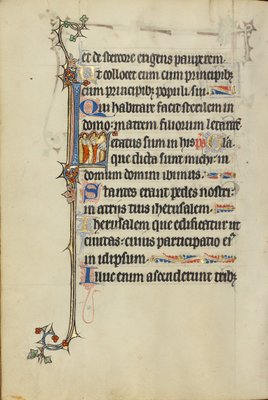 et de stercore erigens pauperem.
Ut collocet eum cum principib;
cum principib; populi sui.
Qui habitare facit sterilem in
domo: matrem filiorum letante͂
Letatus sum in his
que dicta sunt michi: in
domum domini ibimus.
Stantes erant pedes nostri:
in atrijs tuis iherusalem.
Iherusalem que edificatur ut
ciuitas: cuius participatio ei9
in idipsum.
Illuc enim ascenderunt trib;